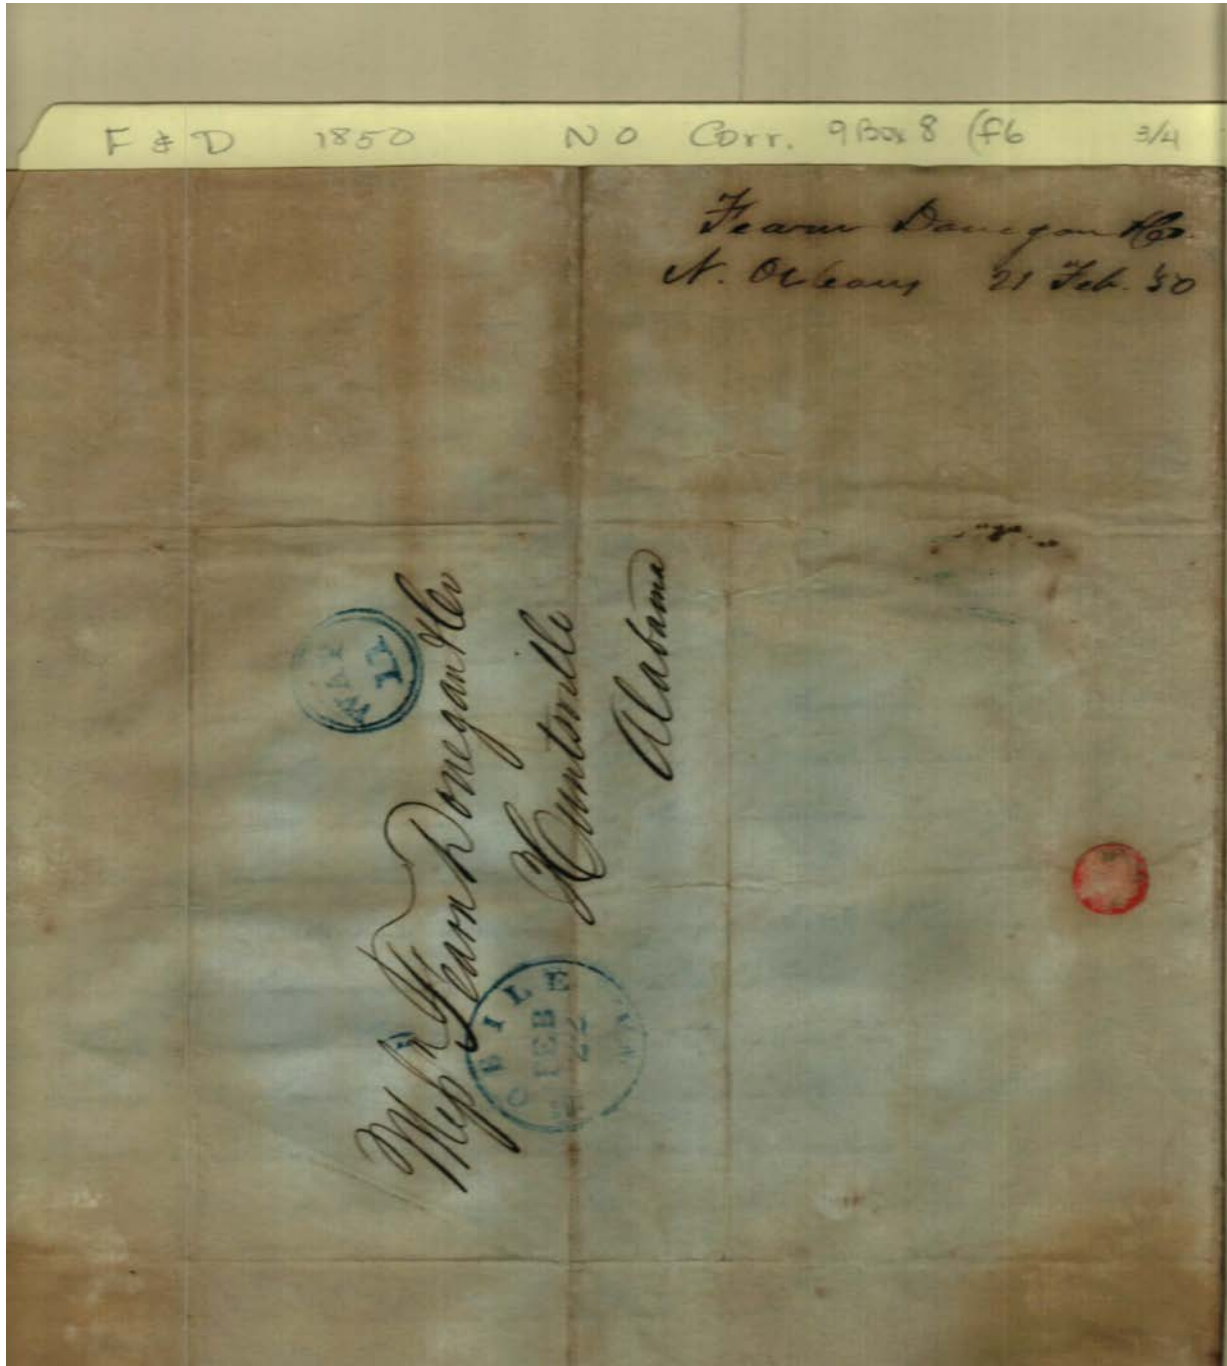 F & D 1850 NO Corr. 9 Box 8 (f6 3/4
Fearn Donegan & Co.
N. Orleans 21 Feb. 50
Messrs Fearn Donegan & Co
Huntsville
Alabama
WAY
11
MOBILE
FEB
22